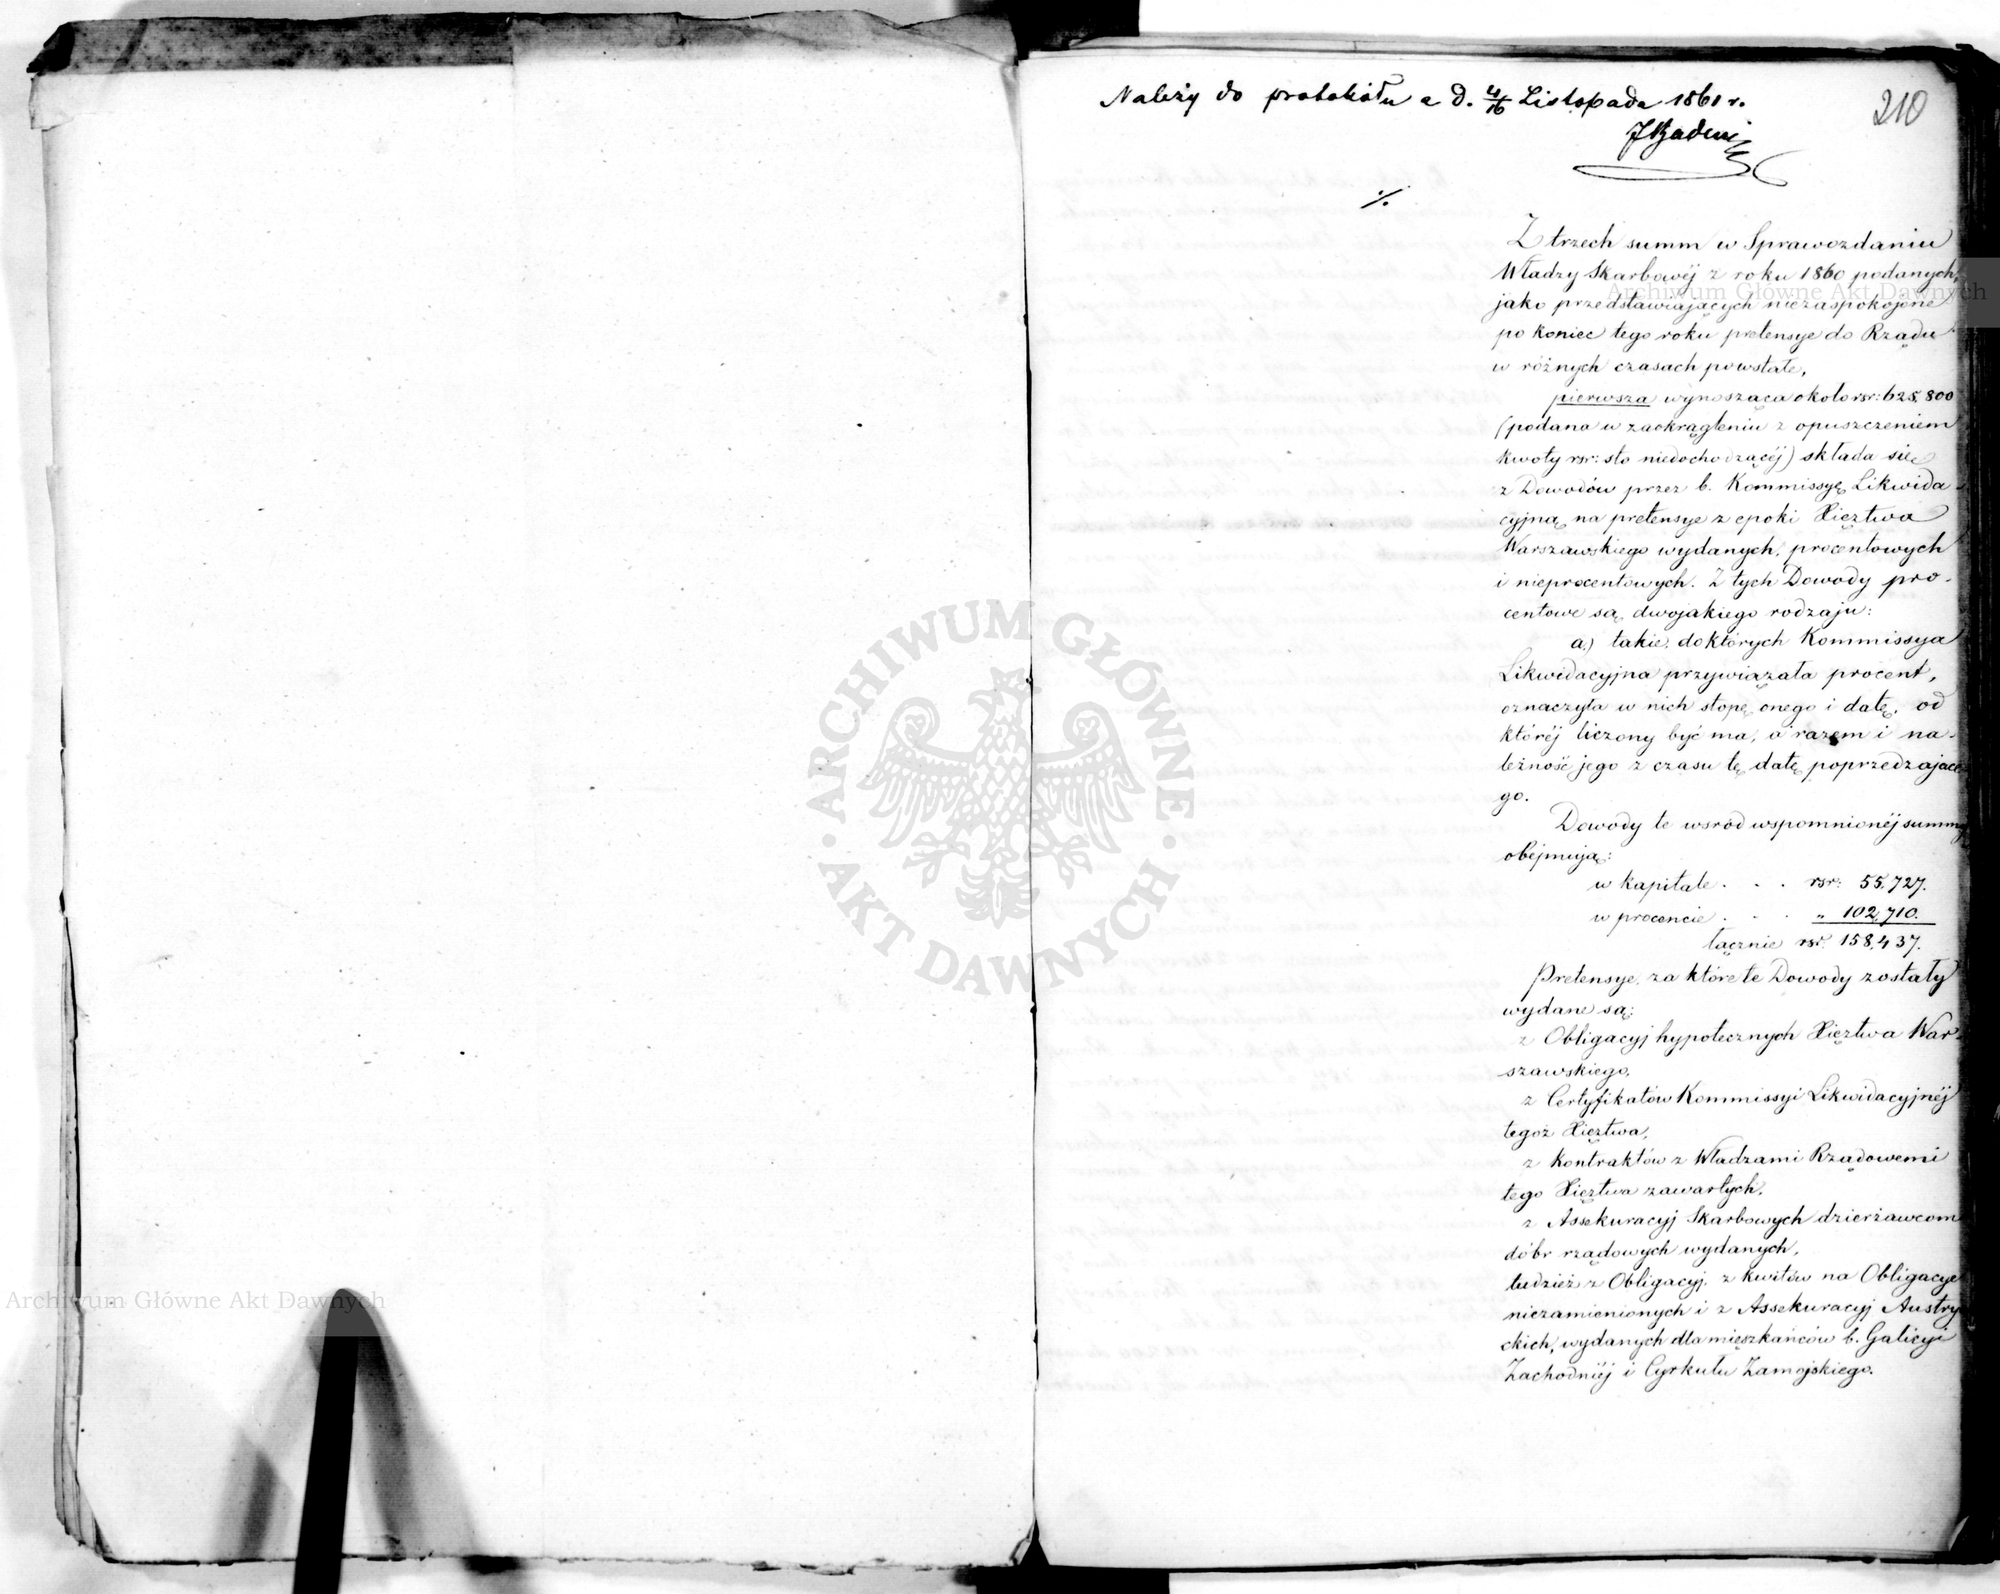 210
Należy do protokółu z d. 4/16 Listopada 1861 r.
JBadeni
./.
Z trzech summ w Sprawozdaniu
Władzy Skarbowéj z roku 1860 podanych,
jako przedstawiających niezaspokojone
po koniec tego roku pretensye do Rządu
w różnych czasach powstałe,
pierwsza wynosząca około rsr: 625,800
(podana w zaokrągleniu z opuszczeniem
kwoty rsr: sto niedochodzącéj) składa się
z Dowodów przez b. Kommissyę Likwida-
cyjną na pretensye z epoki Xięztwa
Warszawskiego wydanych, procentowych
i nieprocentowych. Z tych Dowody pro-
centowe są dwojakiego rodzaju:
a) takie, do których Kommissya
Likwidacyjna przywiązała procent,
oznaczyła w nich stopę onego i datę, od
któréj liczony być ma, a razem i na-
leżność jego z czasu tę datę poprzedzające-
go.
Dowody te wśród wspomnionéj summy
obéjmują:
w kapitale . . . rsr: 55,727.
w procencie . . . „ 102,710.
łącznie rsr. 158,437.
Pretensye, za które te Dowody zostały
wydane są:
z Obligacyj hypotecznych Xięztwa War-
szawskiego,
z Certyfikatów Kommissyi Likwidacyjnéj
tegoż Xięztwa,
z kontraktów z Władzami Rządowemi
tego Xięztwa zawartych,
z Assekuracyj Skarbowych dzierżawcom
dóbr rządowych wydanych,
tudzież z Obligacyj, z kwitów na Obligacye
niezamienionych i z Assekuracyj Austry-
ckich, wydanych dla mieszkańców b. Galicyi
Zachodniéj i Cyrkułu Zamojskiego.
Archiwum Główne Akt Dawnych
ARCHIWUM GŁÓWNE
AKT DAWNYCH
Archiwum Główne Akt Dawnych